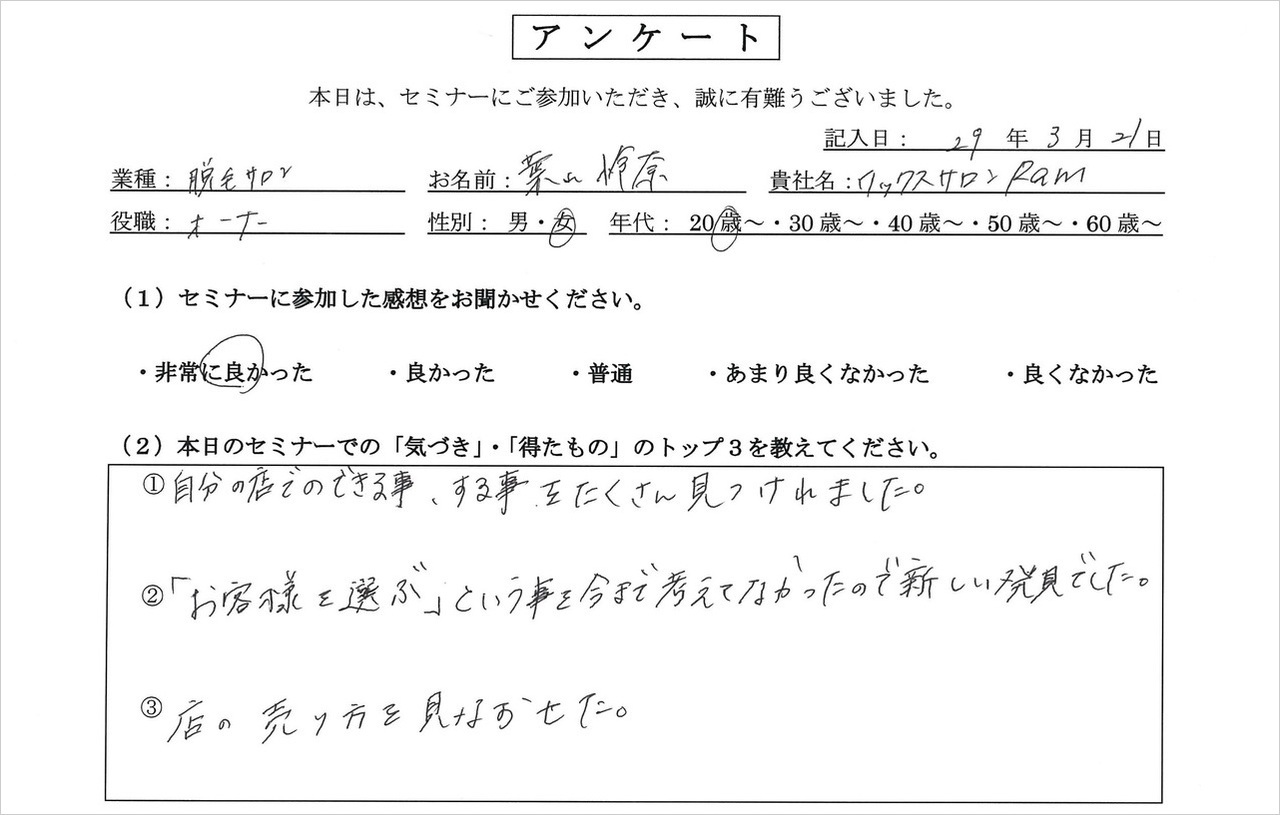 アンケート
本日は、セミナーにご参加いただき、誠に有難うございました。
記入日： 29 年 3 月 21 日
業種：脱毛サロン お名前：葉山 怜奈 貴社名：ワックスサロン Ram
役職：オーナー 性別： 男・女 年代： 20歳～・30歳～・40歳～・50歳～・60歳～
（1）セミナーに参加した感想をお聞かせください。
・非常に良かった ・良かった ・普通 ・あまり良くなかった ・良くなかった
（2）本日のセミナーでの「気づき」・「得たもの」のトップ3を教えてください。
①自分の店でのできる事、する事をたくさん見つけれました。
②「お客様を選ぶ」という事を今まで考えてなかったので新しい発見でした。
③店の売り方を見なおせた。